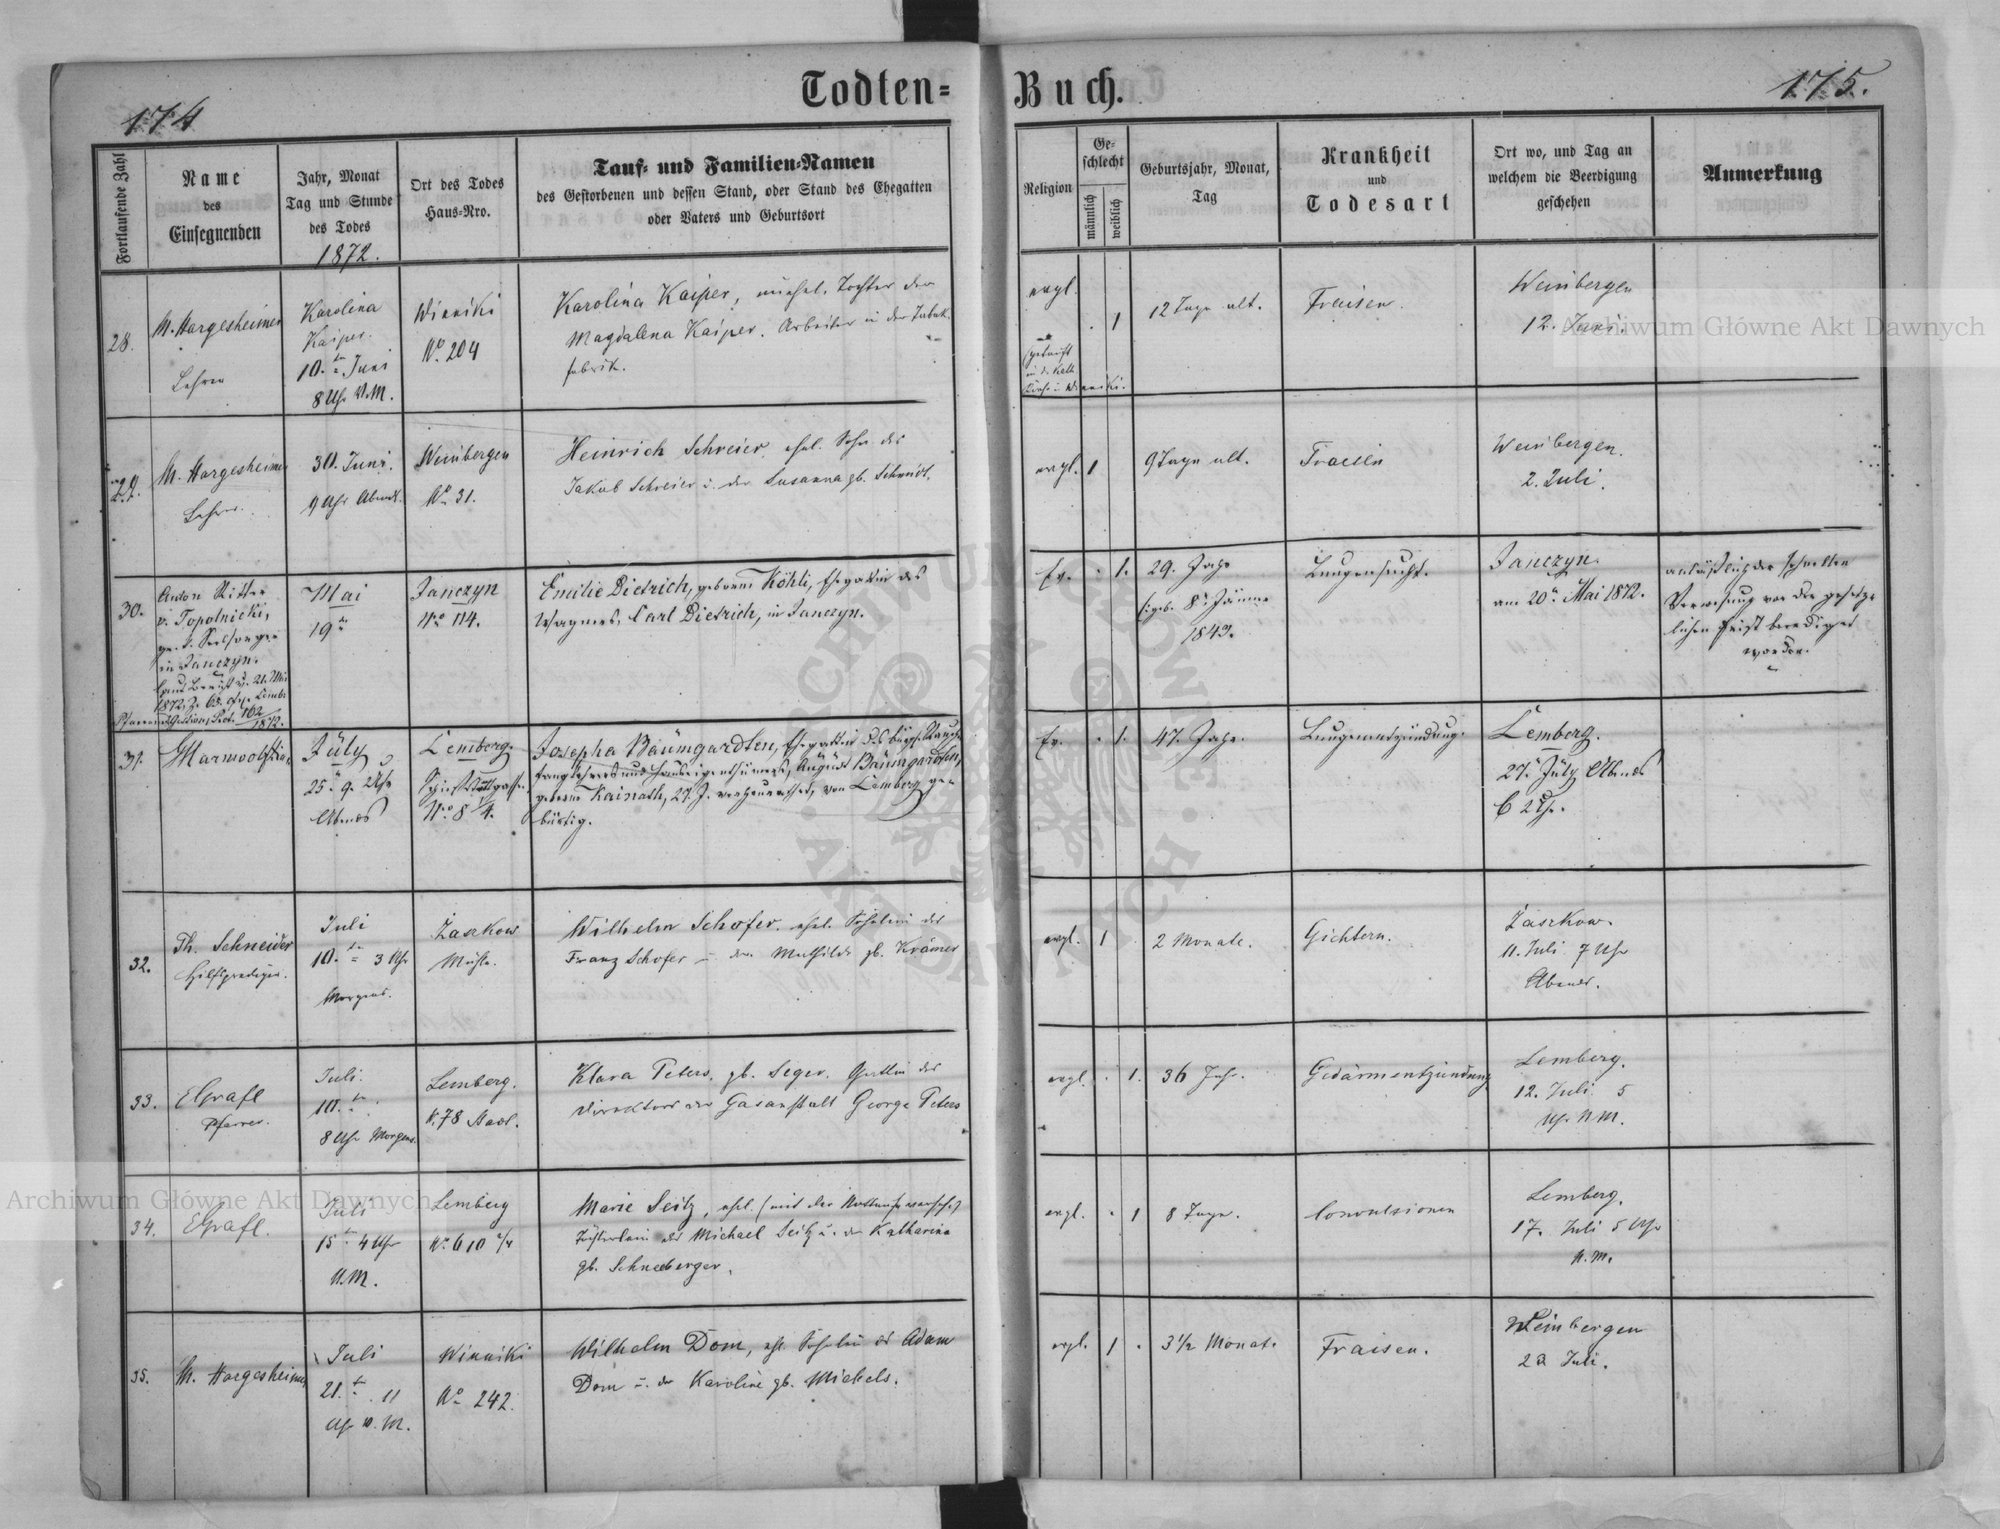 Todten=
Buch.
174
175.
Fortlaufende Zahl
Name
des
Einsegnenden
Jahr, Monat
Tag und Stunde
des Todes
1872.
Ort des Todes
Haus=Nro.
Tauf= und Familien=Namen
des Gestorbenen und dessen Stand, oder Stand des Ehegatten
oder Vaters und Geburtsort
Religion
Ge=
schlecht
männlich
weiblich
Geburtsjahr, Monat,
Tag
Krankheit
und
Todesart
Ort wo, und Tag an
welchem die Beerdigung
geschehen
Anmerkung
28.
M. Hargesheimer
Lehrer
Karolina
Kaiper.
10.ten Juni
8 Uhr V.M.
Winniki
No. 204
Karolina Kaiper, unehel. Tochter der
Magdalena Kaiper, Arbeiter in der Tabak=
fabrik.
evgl.
getauft
in d. Kath.
Kirche in Winniki.
1
12 Tage alt.
Fraisen.
Weinbergen
12. Juni.
29.
M. Hargesheimer
Lehrer.
30. Juni.
9 Uhr Abends.
Weinbergen
No 31.
Heinrich Schreier, ehel. Sohn des
Jakob Schreier u. der Susanna gb. Schmidt.
evgl.
1
9 Tage alt.
Fraisen
Weinbergen.
2. Juli.
30.
Anton Ritter
v. Topolnicki,
gr. k. Seelsorger
in Janczyn.
Mai
19ten
Janczyn
Nro 114.
Emilie Dietrich, geborene Köhli, Ehegattin des
Wagners, Carl Dietrich, in Janczyn.
Ev.
1.
29. Jahre
(geb. 8n Jänner
1843.
Lungensucht.
Janczyn.
am 20n Mai 1872.
anläßlich der schnellen
Verwesung vor der gesetz=
lichen Frist beerdiget
worden.
31.
July
25n 9. Uhr
Abends
Lemberg.
Schießstattgasse
Nro 8 4/4.
Josepha Baumgardten, Ehegattin des bürgl. Rauch=
fangkehrers und Hauseigenthümers, August Baumgardten,
geborne Kainath, 27. J. verheurathet, von Lemberg ge=
bürtig.
Ev.
1.
47. Jahre.
Lungenentzündung.
Lemberg.
27n July Abends
6 Uhr.
32.
Th. Schneider
Hilfsprediger.
Juli
10.ten 3 Uhr
Morgens.
Zaszkow
Mühle.
Wilhelm Schofer, ehel. Söhnlein des
Franz Schofer u. der Mathilde gb. Krämer
evgl.
1
2 Monate.
Gichtern.
Zaszkow.
11. Juli 7 Uhr
Abends.
33.
EGrafl
Pfarrer.
Juli.
10.ten
8 Uhr Morgens.
Lemberg.
Klara Peters, gb. Seger, Gattin des
Direktors der Gasanstalt George Peters
evgl.
1.
36 Jahre.
Gedärmentzündung
Lemberg.
12. Juli 5
Uhr N.M.
34.
EGrafl.
Juli
15ten 4 Uhr
N.M.
Lemberg
No 610 2/4
Marie Seitz, ehel. (mit der Mutter
Töchterlein des Michael Seitz u. der Katharina
gb. Schneeberger.
evgl.
1
8 Tage.
Convulsionen
Lemberg.
17. Juli 5 Uhr
N.M.
35.
M. Hargesheimer
Juli
21.ten 11
Uhr V.M.
Winniki
No 242.
Wilhelm Dom, ehl. Söhnlein des Adam
Dom u. der Karoline gb. Michels.
evgl.
1
3 1/2 Monate.
Fraisen.
Weinbergen
22 Juli.
Archiwum Główne Akt Dawnych
Archiwum Główne Akt Dawnych
ARCHIWUM GŁÓWNE AKT DAWNYCH